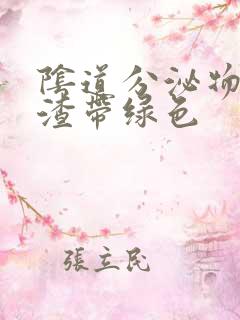 陰道分泌物
渣帶绿色
張立民